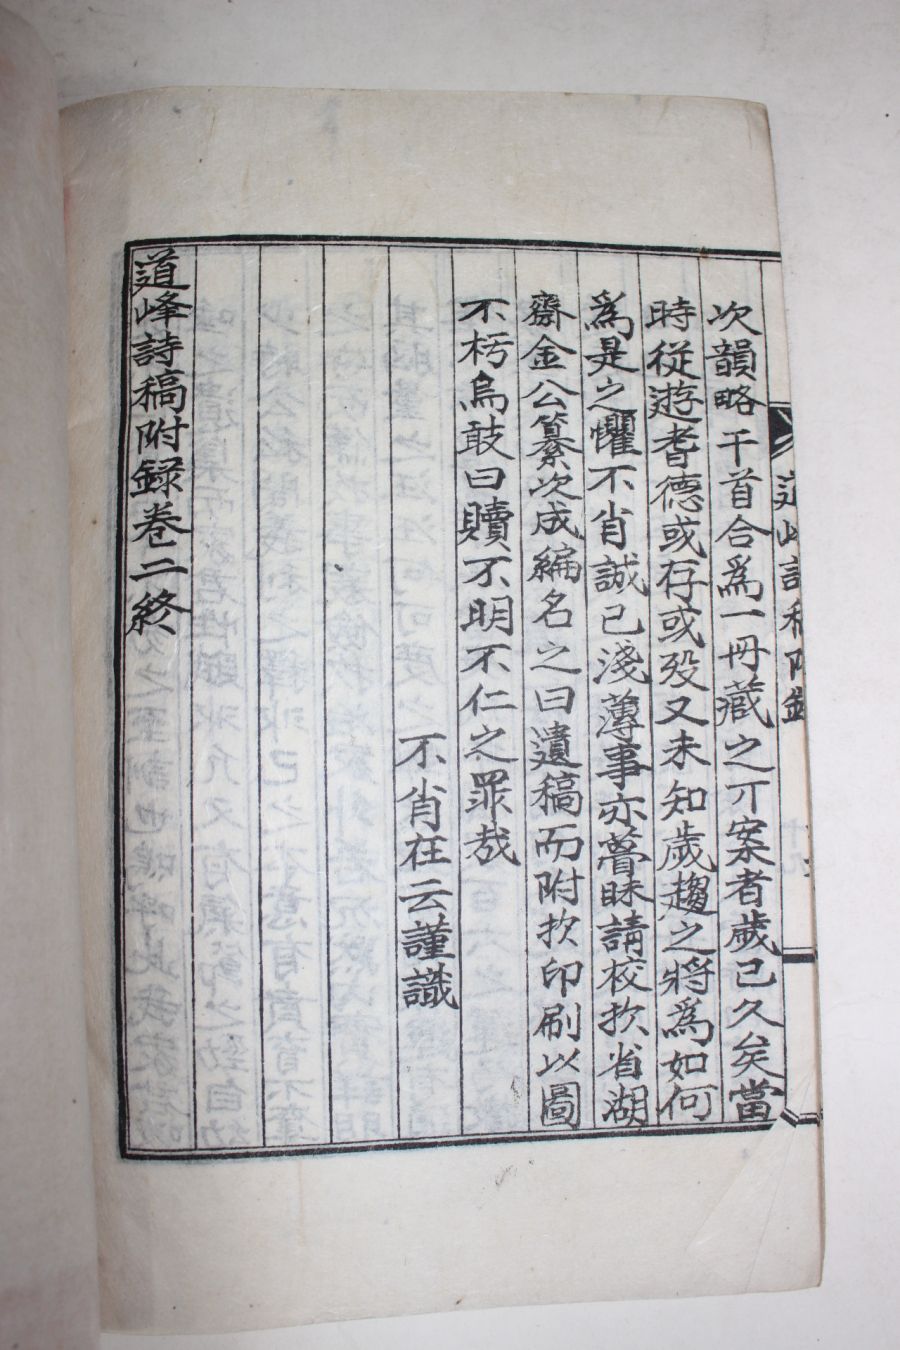 道峰詩稿附錄
次韻略干首合爲一冊藏之丌案者歲已久矣當
時從遊耆德或存或歿又未知歲趨之將爲如何
爲是之懼不肖誠已淺薄事亦瞢昧請校於省湖
齋金公纂次成編名之曰遺稿而附於印刷以圖
不朽烏敢曰贖不明不仁之罪哉
不肖在云謹識
道峰詩稿附録卷二終